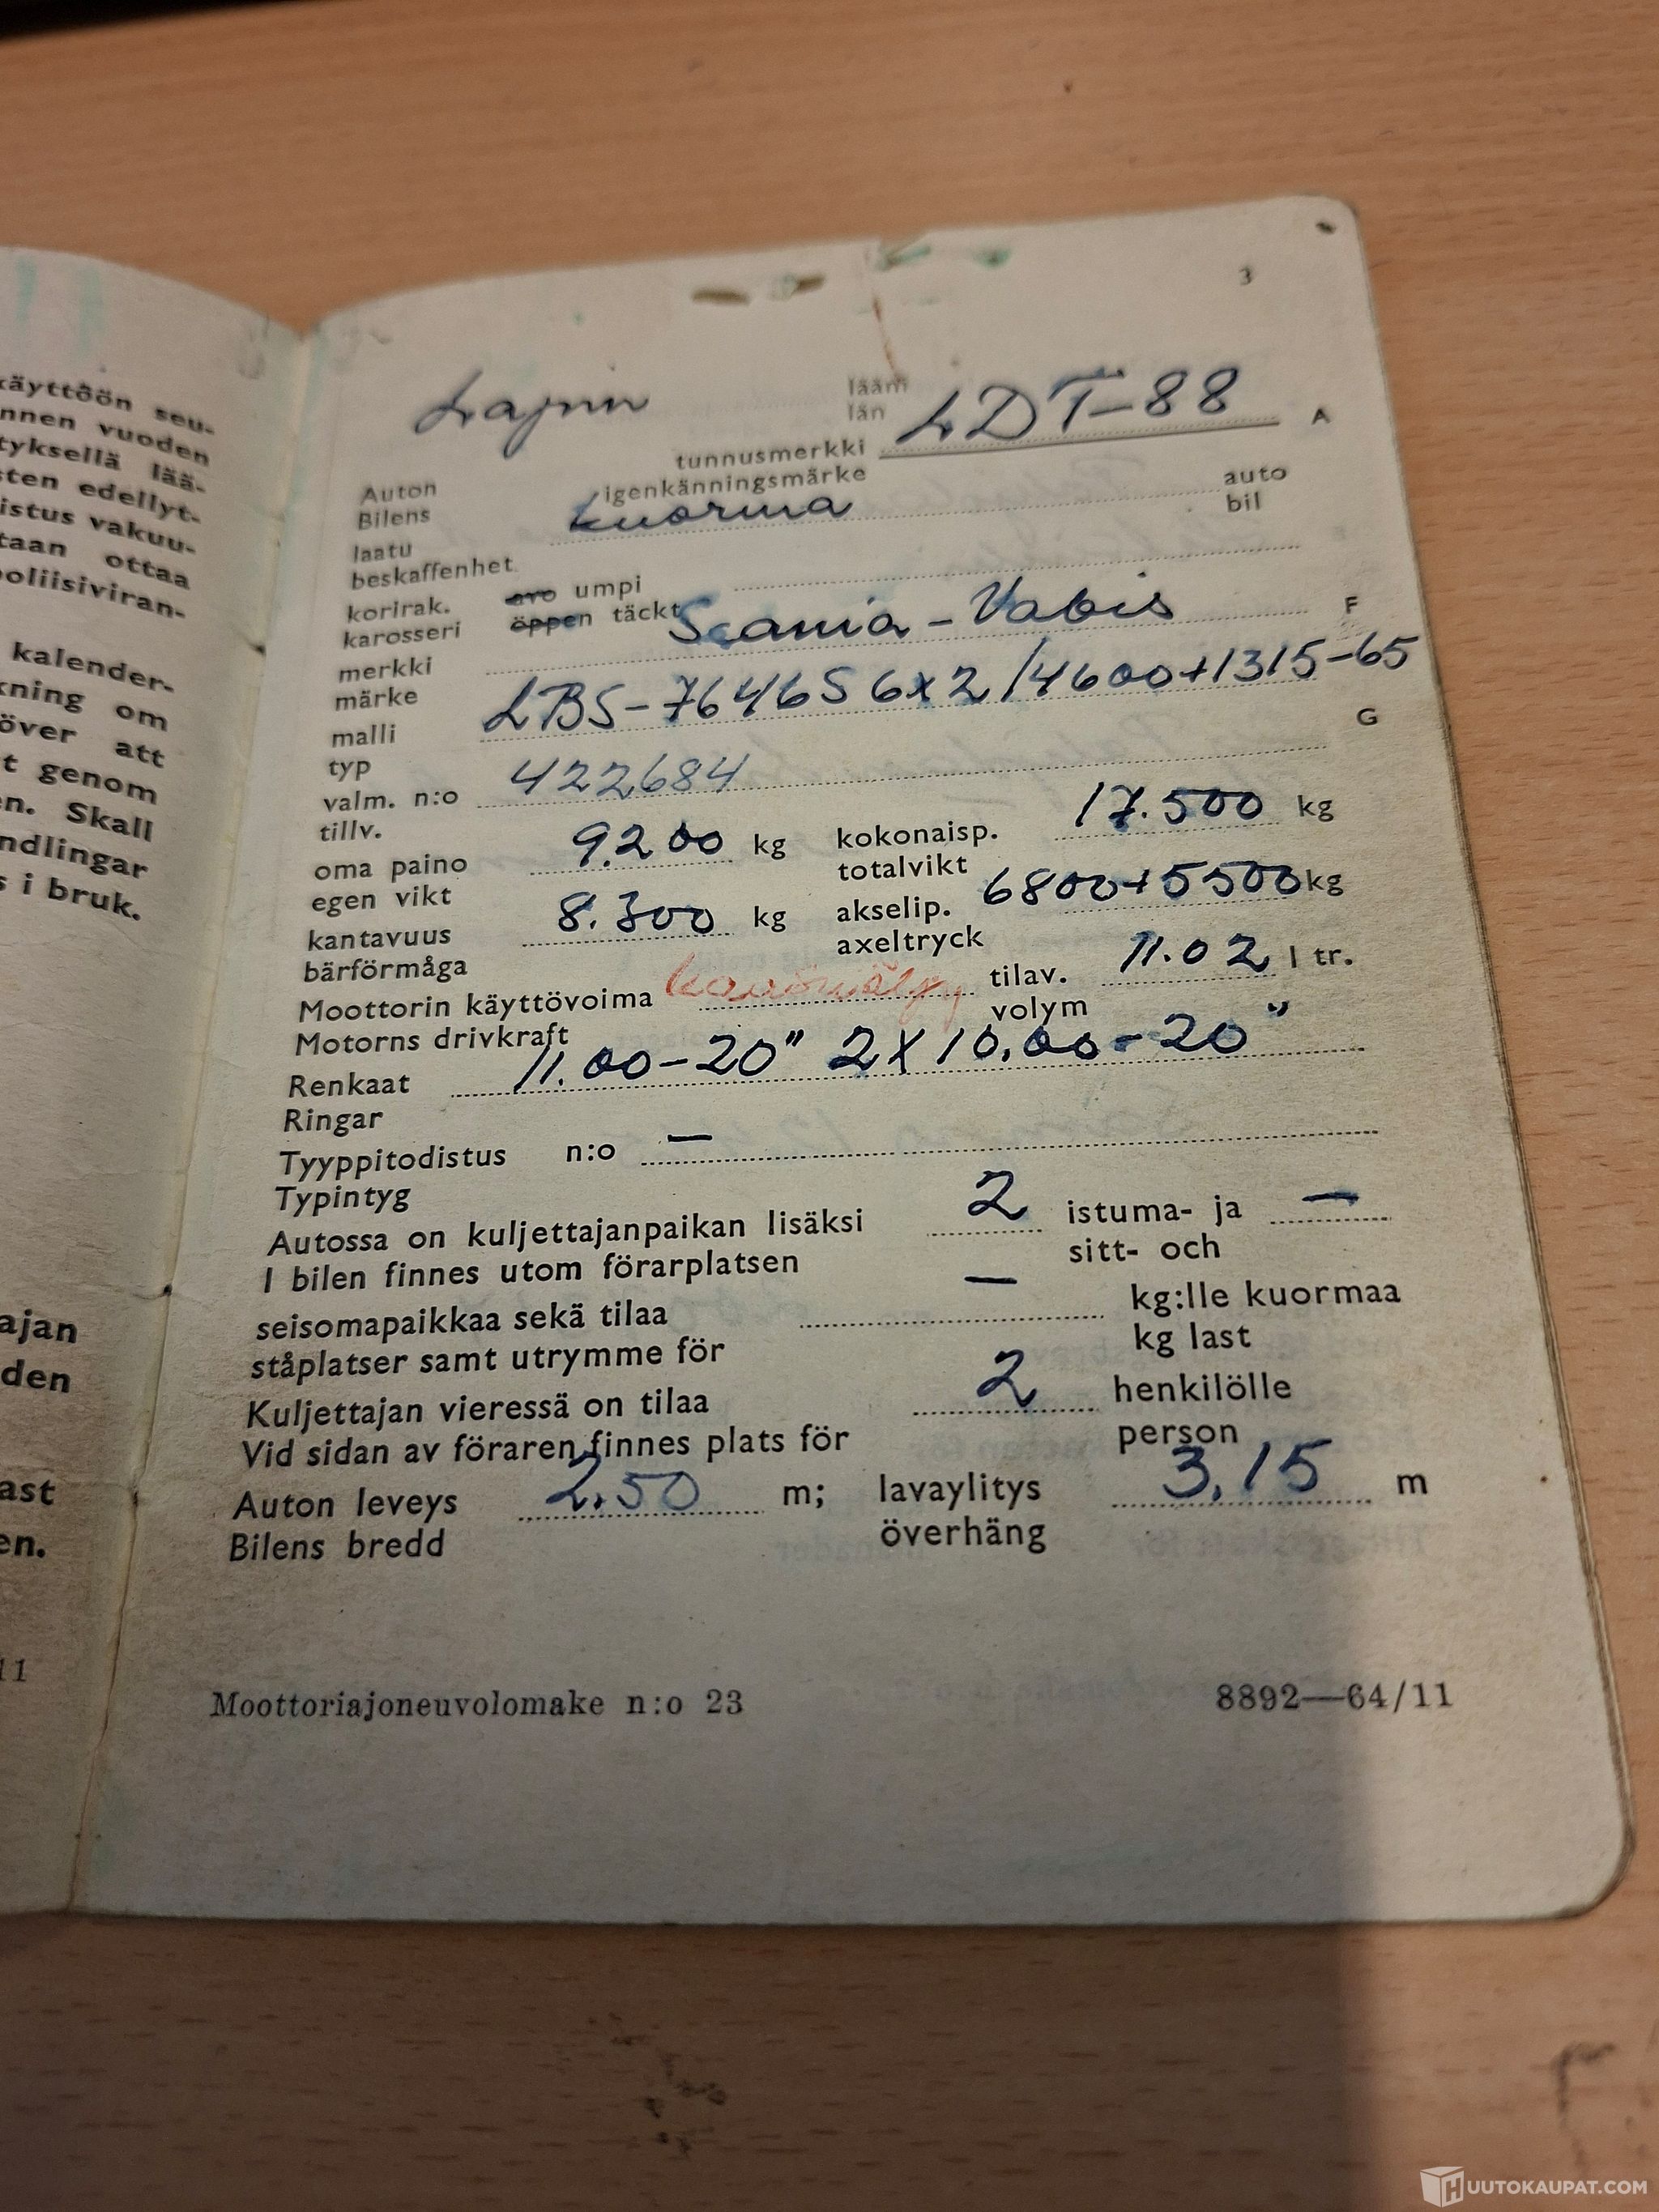 käyttöön seu-
nnen vuoden
tyksellä lää-
sten edellyt-
istus vakuu-
taan ottaa
poliisiviran-
kalender-
kning om
över att
t genom
en. Skall
ndlingar
s i bruk.
ajan
den
ast
en.
11
3
Lapin lääni LDT-88 A
län
tunnusmerkki
Auton igenkänningsmärke
Bilens kuorma auto
bil
laatu
beskaffenhet
korirak. avo umpi
karosseri öppen täckt
merkki Scania-Vabis F
märke
malli LBS-7646S 6x2/4600+1315-65
typ G
valm. n:o 422684
tillv.
oma paino 9.200 kg kokonaisp. 17.500 kg
egen vikt totalvikt
kantavuus 8.300 kg akselip. 6800+5500 kg
bärförmåga axeltryck
Moottorin käyttövoima tilav. 11.02 l tr.
Motorns drivkraft volym
Renkaat 11.00-20" 2X10.00-20"
Ringar
Tyyppitodistus n:o —
Typintyg
Autossa on kuljettajanpaikan lisäksi 2 istuma- ja —
I bilen finnes utom förarplatsen sitt- och
seisomapaikkaa sekä tilaa — kg:lle kuormaa
ståplatser samt utrymme för kg last
Kuljettajan vieressä on tilaa 2 henkilölle
Vid sidan av föraren finnes plats för person
Auton leveys 2.50 m; lavaylitys 3,15 m
Bilens bredd överhäng
Moottoriajoneuvolomake n:o 23 8892—64/11
HUUTOKAUPAT.COM